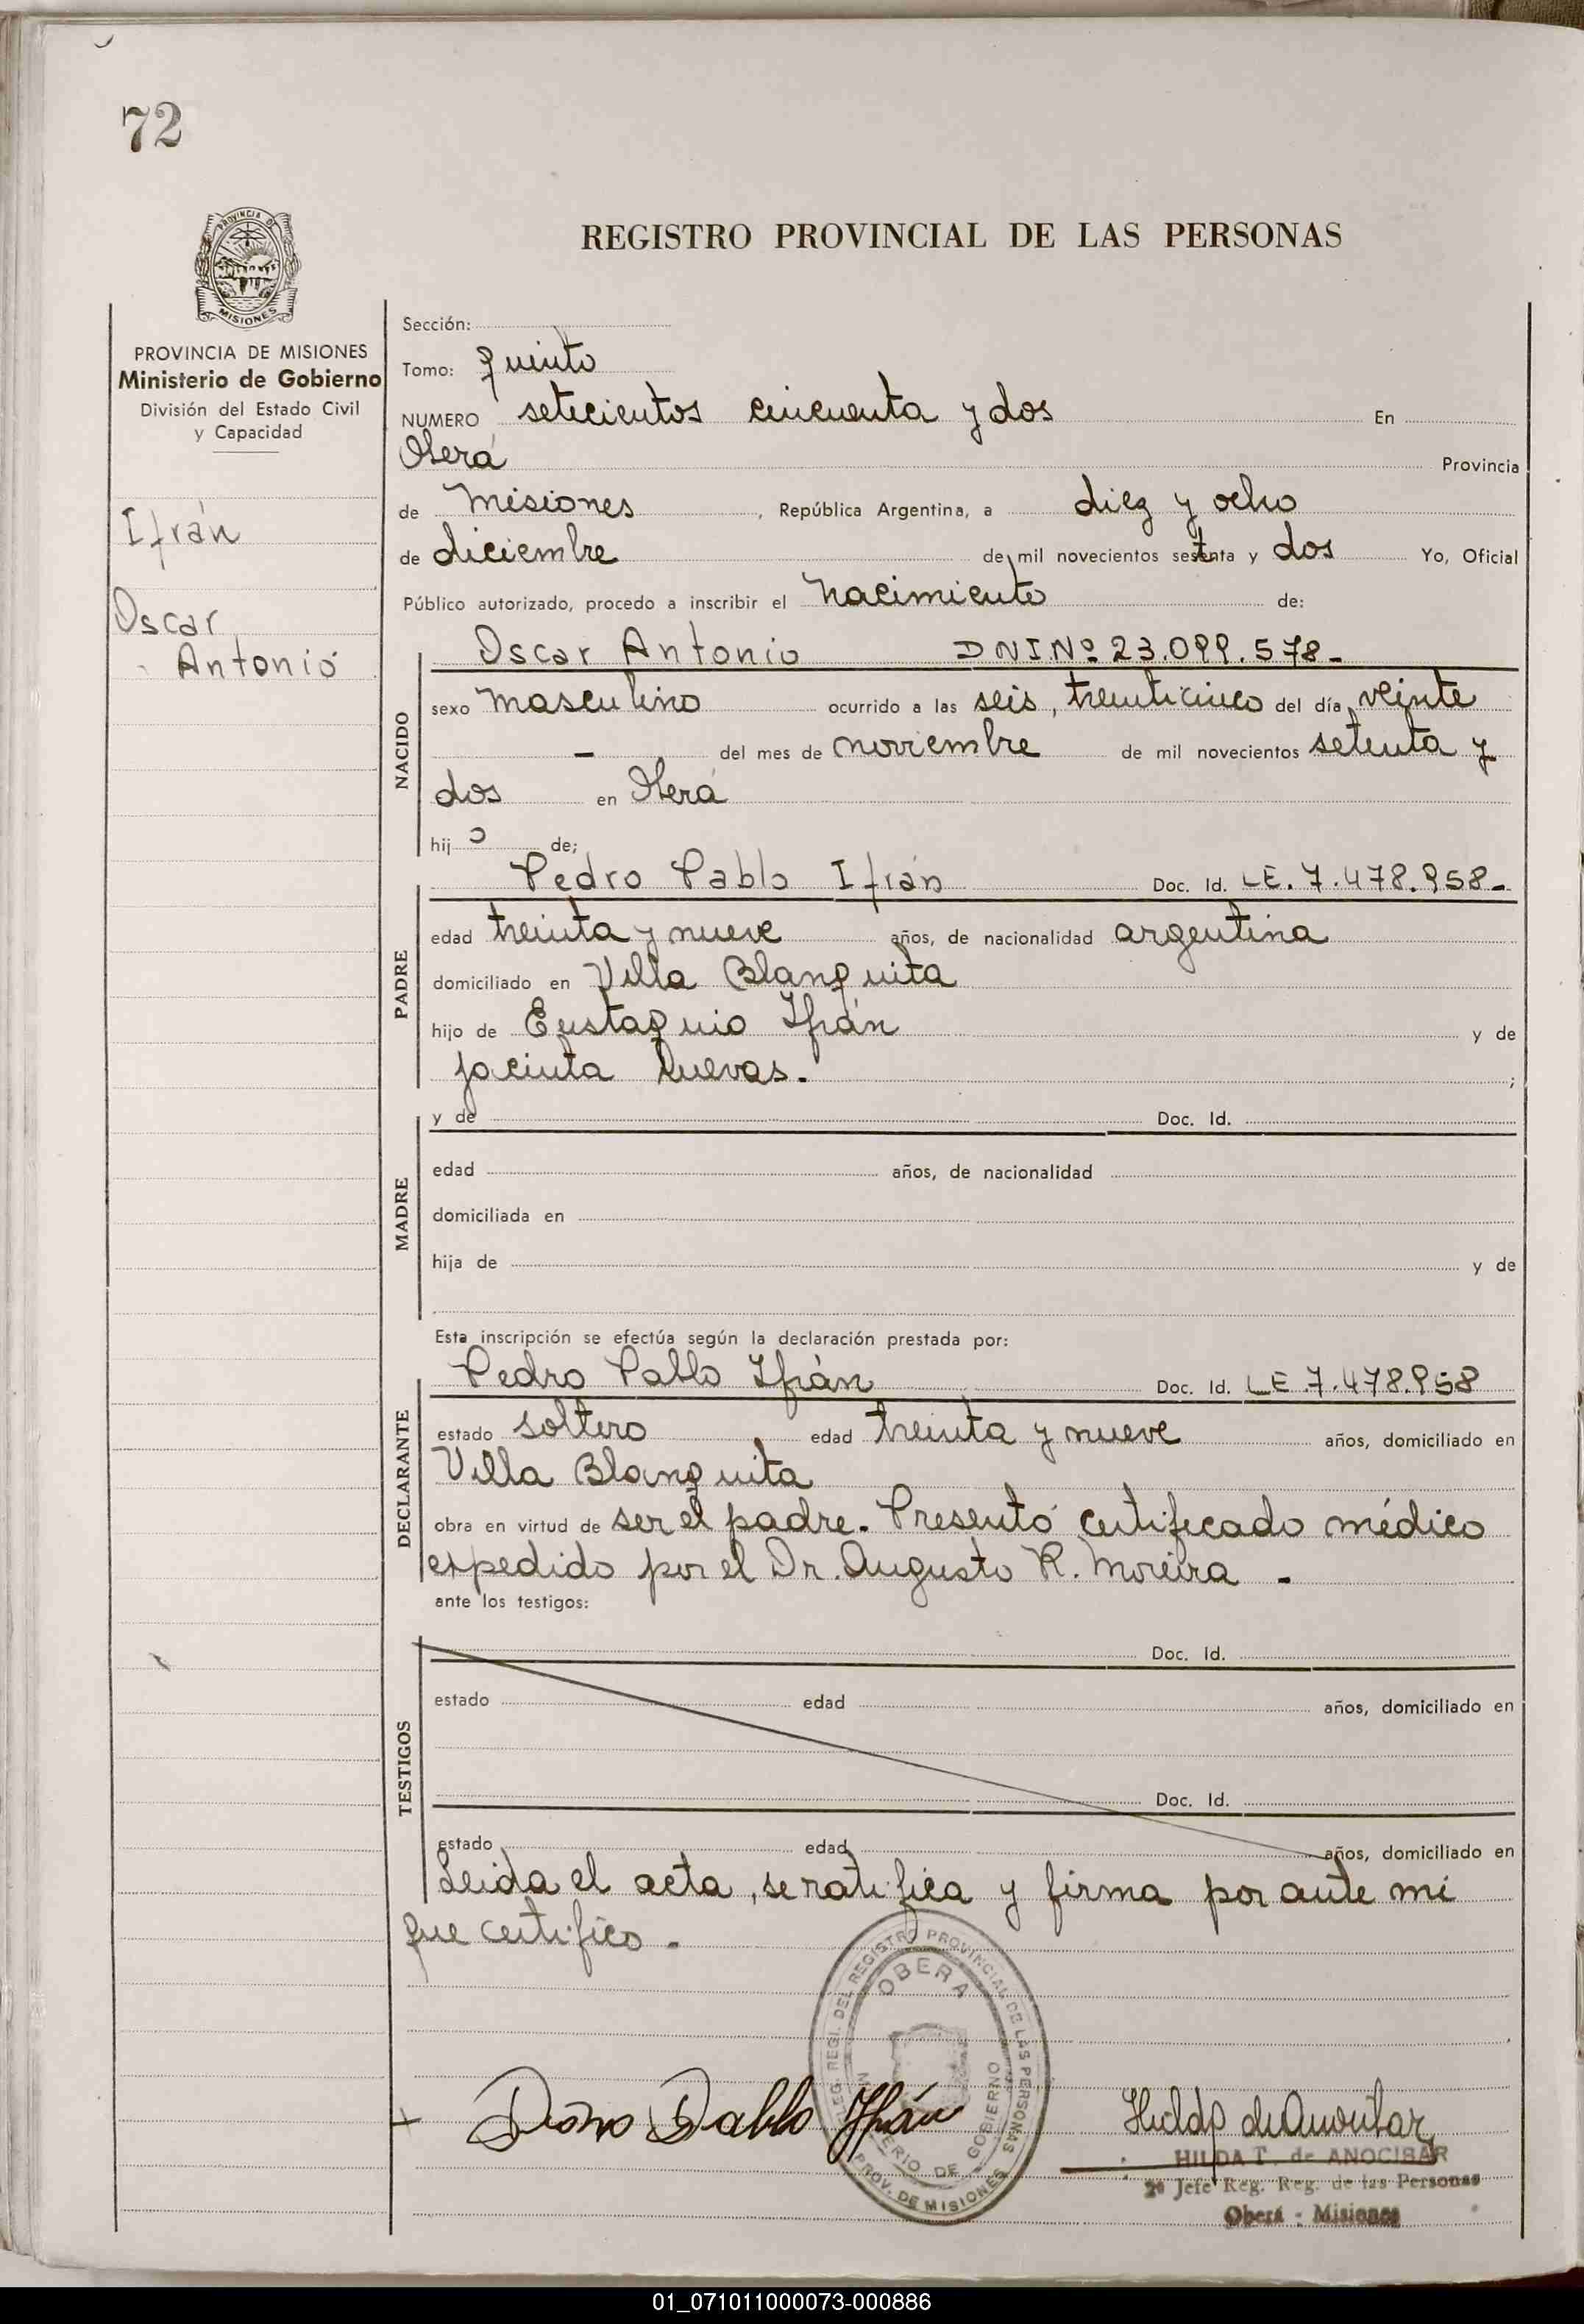 72
PROVINCIA DE
MISIONES
REGISTRO PROVINCIAL DE LAS PERSONAS
PROVINCIA DE MISIONES
Ministerio de Gobierno
División del Estado Civil
y Capacidad
Ifrán
Oscar
Antonio
Sección:
Tomo: quinto
NUMERO setecientos cincuenta y dos En
Oberá Provincia
de Misiones, República Argentina, a diez y ocho
de diciembre de mil novecientos setenta y dos Yo, Oficial
Público autorizado, procedo a inscribir el Nacimiento de:
NACIDO
Oscar Antonio DNI Nº 23.099.578-
sexo masculino ocurrido a las seis, treinticinco del día veinte
- del mes de noviembre de mil novecientos setenta y
dos en Oberá
hijo de;
PADRE
Pedro Pablo Ifrán Doc. Id. LE. 7.478.958-
edad treinta y nueve años, de nacionalidad argentina
domiciliado en Villa Blanquita
hijo de Eustaquio Ifrán y de
Jacinta Cuevas. ;
MADRE
y de Doc. Id.
edad años, de nacionalidad
domiciliada en
hija de y de
Esta inscripción se efectúa según la declaración prestada por:
DECLARANTE
Pedro Pablo Ifrán Doc. Id. LE.7.478.958
estado soltero edad treinta y nueve años, domiciliado en
Villa Blanquita
obra en virtud de ser el padre. Presentó certificado médico
expedido por el Dr. Augusto R. Moreira -
ante los testigos:
TESTIGOS
Doc. Id.
estado edad años, domiciliado en
Doc. Id.
estado edad años, domiciliado en
Leida el acta, se ratifica y firma por ante mi
que certifico -
REGI. DEL REGISTRO PROVINCIAL DE LAS PERSONAS
OBERA
DE GOBIERNO
PROV. DE MISIONES
Pablo Ifrán
HILDA T. de ANOCIBAR
2º Jefe Reg. Reg. de las Personas
Oberá - Misiones
01_071011000073-000886